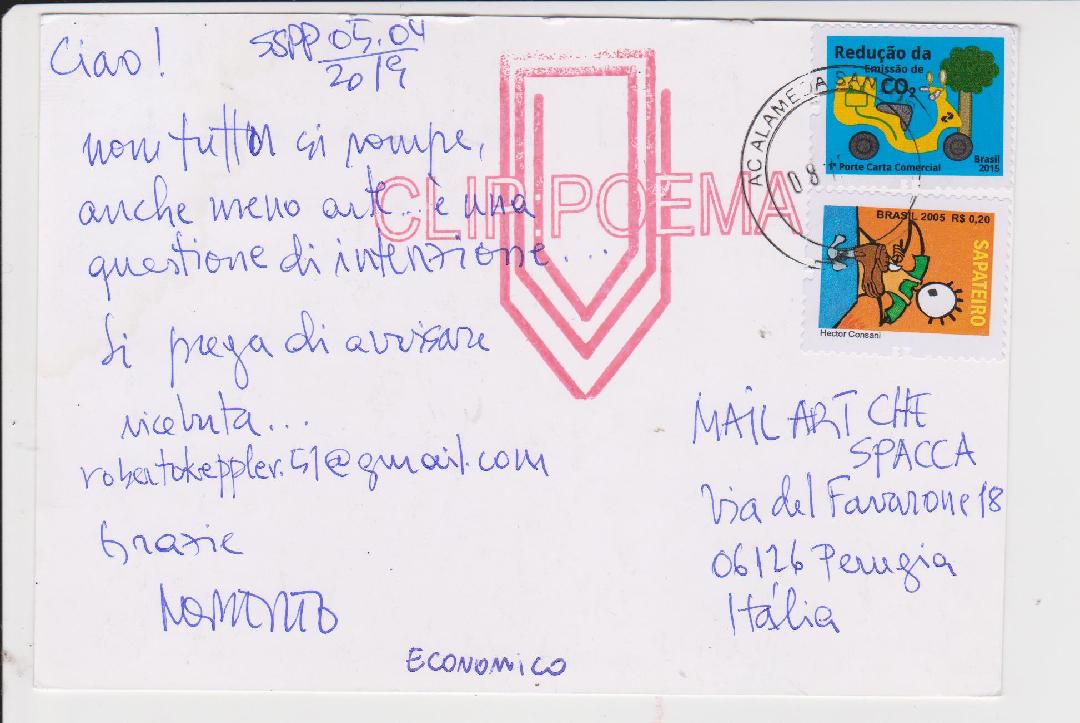 Ciao!
SSPP 05.04
2019
non tutto si rompe,
anche meno arte... è una
questione di intenzione...
Si prega di avvisare
ricebuta...
robertokeppler.51@gmail.com
Grazie
ECONOMICO
CLIP POEMA
AC ALAMEDA SAN
08
Redução da
Emissão de
CO2
1º Porte Carta Comercial
Brasil
2015
BRASIL 2005 R$ 0,20
SAPATEIRO
Hector Consani
MAIL ART CHE
SPACCA
Via del Favarone 18
06126 Perugia
Itália